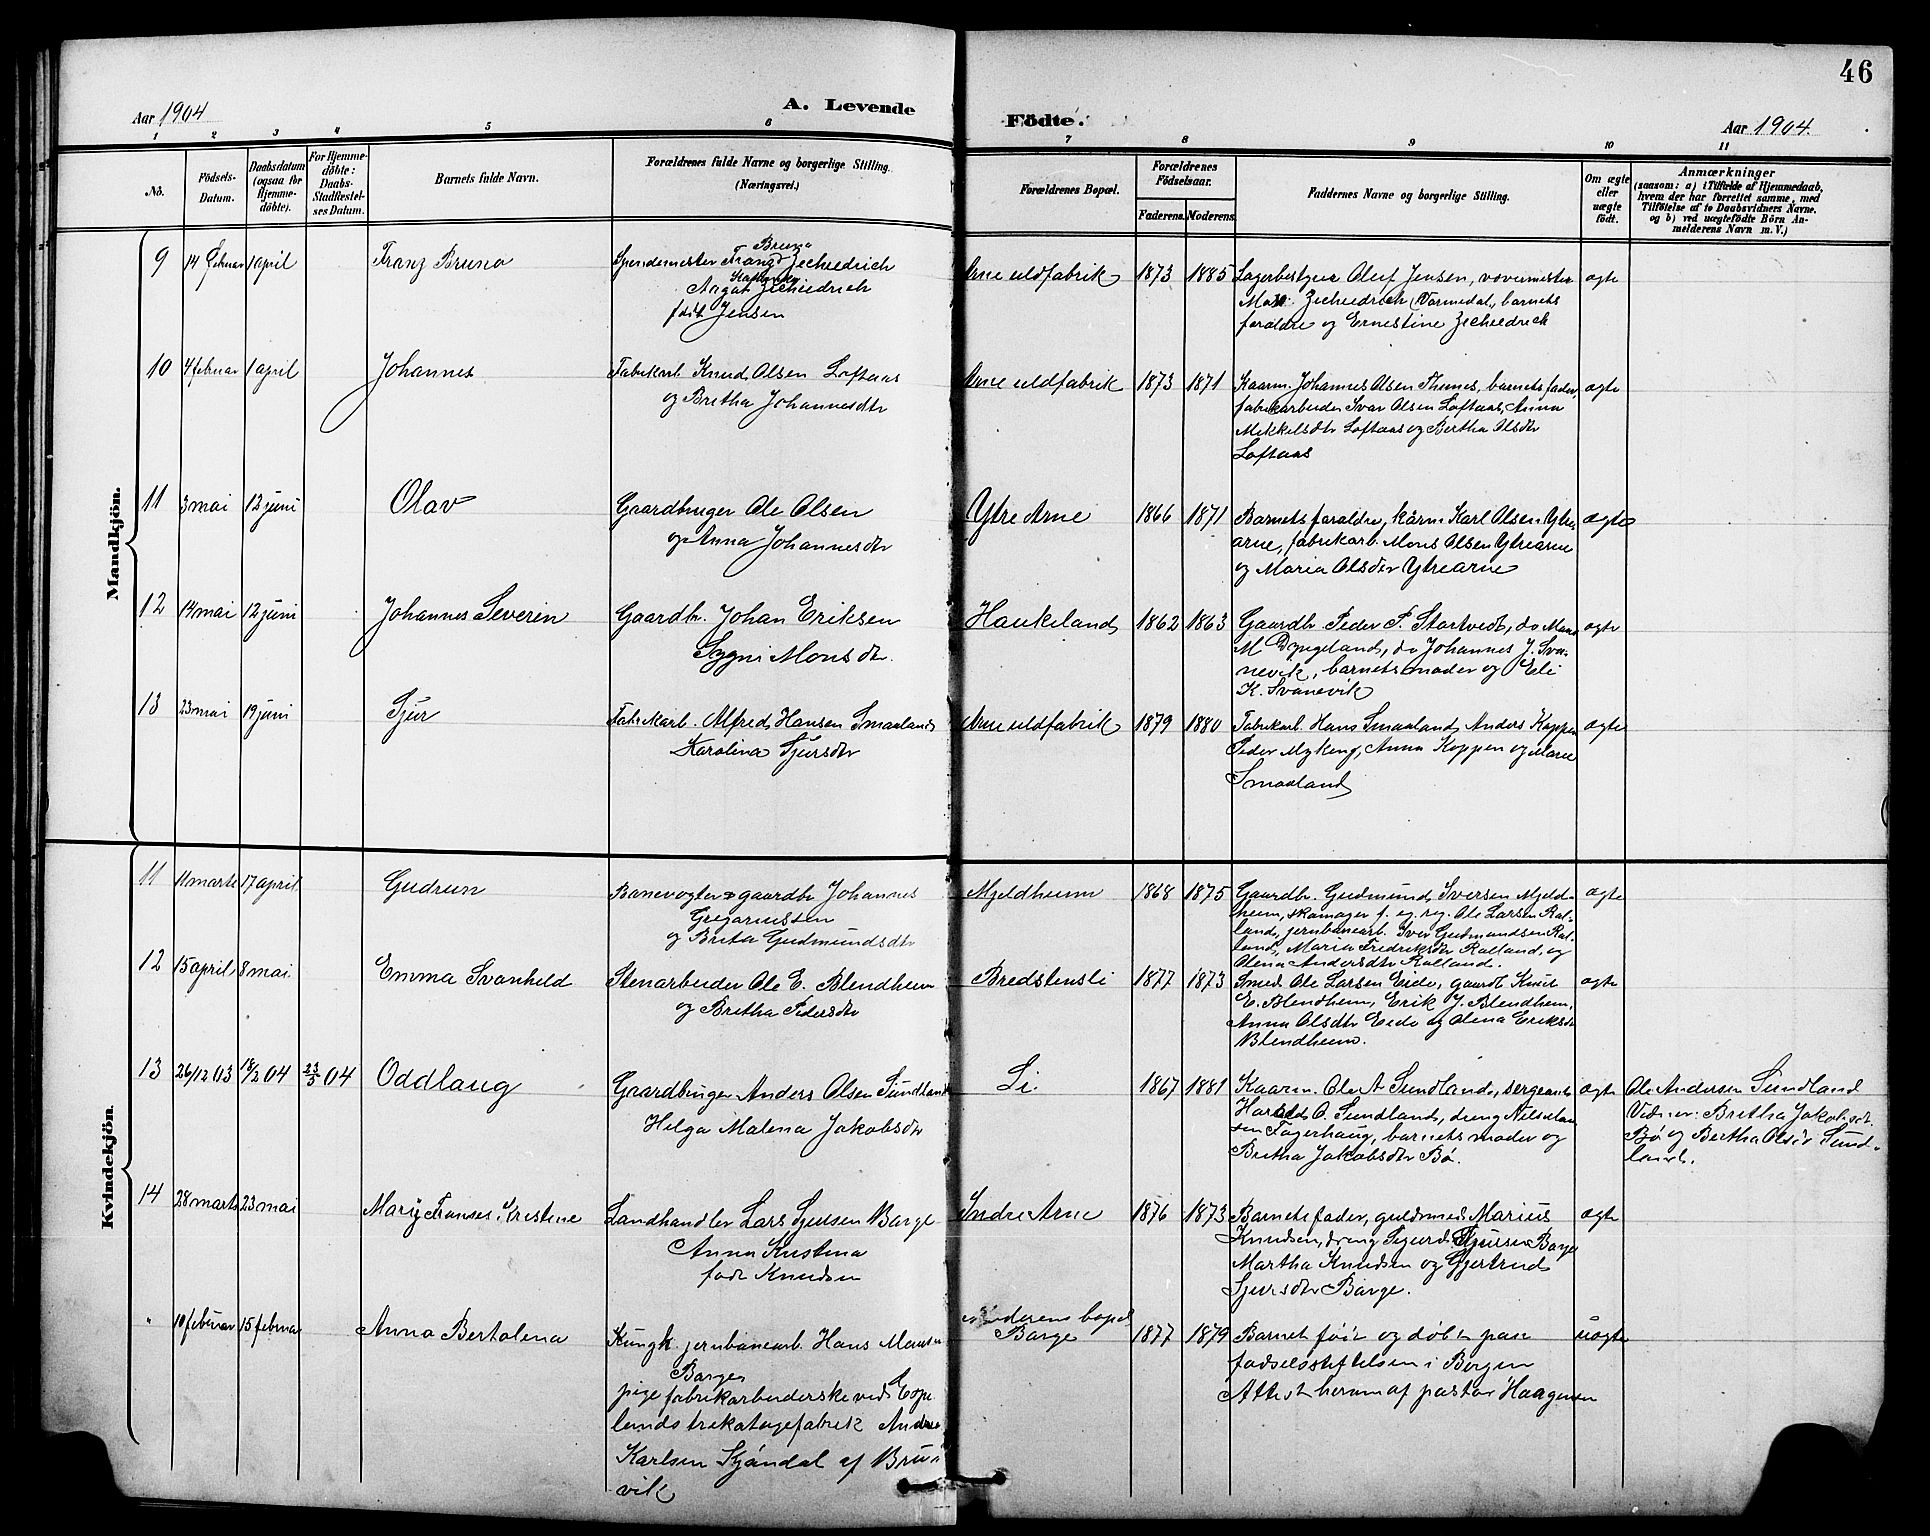 46
Aar 1904
A. Levende
Födte.
Aar 1904.
1 2 3 4 5 6 7 8 9 10 11
No.
Födsels-
Datum.
Daabsdatum
(ogsaa for
Hjemme-
döbte).
For Hjemme-
döbte:
Daabs-
Stadfæstel-
ses Datum.
Barnets fulde Navn.
Forældrenes fulde Navne og borgerlige Stilling.
(Næringsvei.)
Forældrenes Bopæl.
Forældrenes
Födselsaar.
Faderens. Moderens.
Faddernes Navne og borgerlige Stilling.
Om ægte
eller
uægte
födt.
Anmærkninger
(saasom: a) i Tilfælde af Hjemmedaab,
hvem der har forrettet samme, med
Tilföielse af to Daabsvidners Navne,
og b) ved uægtefödte Börn An-
melderens Navn m. V.)
Mandkjön.
9 14 februar 1 april Franz Bruno
Bruno
Spindemester Franz Zschiedrich
Aagot Zschiedrich
født Jensen
Arne uldfabrik 1873 1885
Lagerbestyrer Oluf Jensen, vævermester
Max Zschiedrich, Varmedal, barnets
forældre og Ernestine Zschiedrich
ægte
10 4 februar 1 april Johannes
Fabrikarb. Knud Olsen Loftaas
og Bretha Johannesdtr
Arne uldfabrik 1873 1871
Kaarm. Johannes Olsen Thunes, barnets fader,
fabrikarbeider Ivar Olsen Loftaas, Anna
Mikkelsdtr Loftaas og Bertha Olsdtr
Loftaas
ægte
11 3 mai 12 juni Olav
Gaardbruger Ole Olsen
og Anna Johannesdtr
Ytre Arne 1866 1871
Barnets forældre, kårm Karl Olsen Ytre
arne, fabrikarb. Mons Olsen Ytrearne
og Maria Olsdtr Ytrearne
ægte
12 14 mai 12 juni Johannes Severin
Gaardbr. Johan Eriksen
Sygni Monsdtr.
Haukeland 1862 1863
Gaardbr Peder P. Stortvedt, do Mons
M Dyngeland, do Johannes J. Sva-
nevik, barnets moder og Eli
K. Svanevik
ægte
13 23 mai 19 juni Sjur
Fabrikarb. Alfred Hansen Smaaland
Karolina Sjursdtr
Arne uldfabrik 1879 1880
Fabrikarb. Hans Smaaland, Anders Koppen
Peder Myking, Anna Koppen og Marie
Smaaland
ægte
Kvindekjön.
11 11 marts 17 april Gudrun
Banevogter og gaardbr Johannes
Gregoriussen
og Brita Gudmundsdtr
Mjeldheim 1868 1875
Gaardbr. Gudmund Iversen Mjeld-
heim, skomager f. eg. reg. Ole Larsen Ral-
land, jernbanearb. Iver Gudmundsen Ral-
land, Maria Fredriksdtr Ralland, og
Olena Andersdtr Ralland.
ægte
12 15 april 8 mai Emma Svanhild
Stenarbeider Ole E. Blendheim
og Bretha Pedersdtr
Bredstensli 1877 1873
Smed Ole Larsen Eide, gaardb Knut
E. Blendheim, Erik J. Blendheim,
Anna Olsdtr Eide og Olena Eriksdtr
Blendheim.
ægte
13 26/12 03 18/2 04 23/5 04 Oddlaug
Gaardbruger Anders Olsen Sundland
Helga Malena Jakobsdtr
Li 1867 1881
Kaarm. Ole A Sundland, sergeant
Harald O. Sundland, dreng Nils
Fagerhaug, barnets moder og
Bretha Jakobsdtr Bø.
ægte
Ole Andersen Sundland
Vidner: Bretha Jakobsdtr
Bø og Bertha Olsdtr Sund-
land.
14 28 marts 23 mai Mary Franses Kristine
Landhandler Lars Sjursen Borge
Anna Kristina
født Knudsen
Indre Arne 1876 1873
Barnets fader, guldsmed Marius
Knudsen, dreng Sigurd Sjursen Borge
Martha Knudsen og Gjertrud
Sjursdtr Borge.
ægte
" 10 februar 15 februar Anna Bertolina
Ungk. jernbanearb. Hans Monsen
Borge
pige fabrikarbeiderske ved Espe
lands trikotagefabrik
Karlsen Kjöndal af Bruu
vik
Moderens bopel
Borge 1877 1879
Barnet født og døbt paa
fødselsstiftelsen i Bergen
Attest herom af pastor Haagensen
uægte